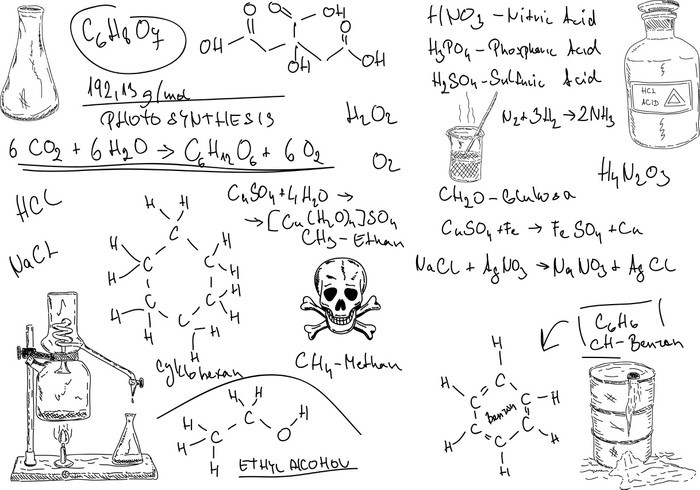 C6H8O7
O
O
OH
O
OH
OH
OH
192,13 g/mol
PHOTOSYNTHESIS
6 CO2 + 6 H2O → C6H12O6 + 6 O2
H2O2
O2
HCl
NaCl
CuSO4 + 4H2O →
→ [Cu(H2O)4]SO4
CH3 - Ethan
H H
H C H
H C C H
H C C H
C H
H
Cyklohexan
CH4 - Methan
H H H
H C C O
H H
ETHYL ALCOHOL
HNO3 - Nitric Acid
H3PO4 - Phosphoric Acid
H2SO4 - Sulfuric Acid
N2 + 3H2 → 2NH3
HCL
ACID
H4N2O3
CH2O - Glukosa
CuSO4 + Fe → FeSO4 + Cu
NaCl + AgNO3 → NaNO3 + AgCl
C6H6
CH - Benzan
H
H C H
C C
Benzan
C C
H C H
H